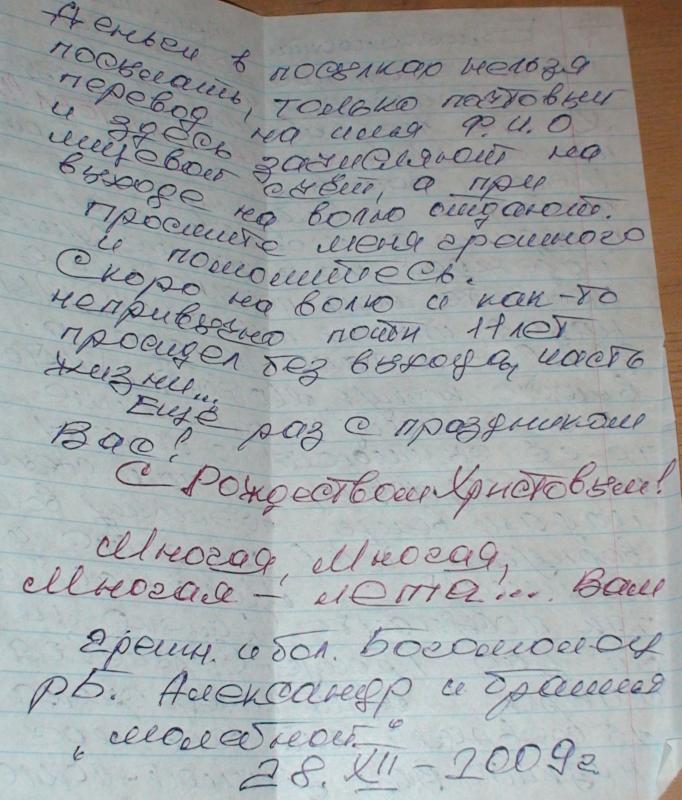 Деньги в посылках нельзя
посылать, только почтовый
перевод на имя Ф.И.О
и здесь зачисляют на
лицевой счёт, а при
выходе на волю отдают.
Простите меня грешного
и помолитесь.
Скоро на волю и как-то
непривычно почти 11 лет
просидел без выхода, часть
жизни...
Ещё раз с праздником
Вас!
С Рождеством Христовым!
Многая, Многая,
Многая - лета... Вам
грешн. и бол. Богомолец
рБ. Александр и братия
"молебной"
28. XII - 2009 г